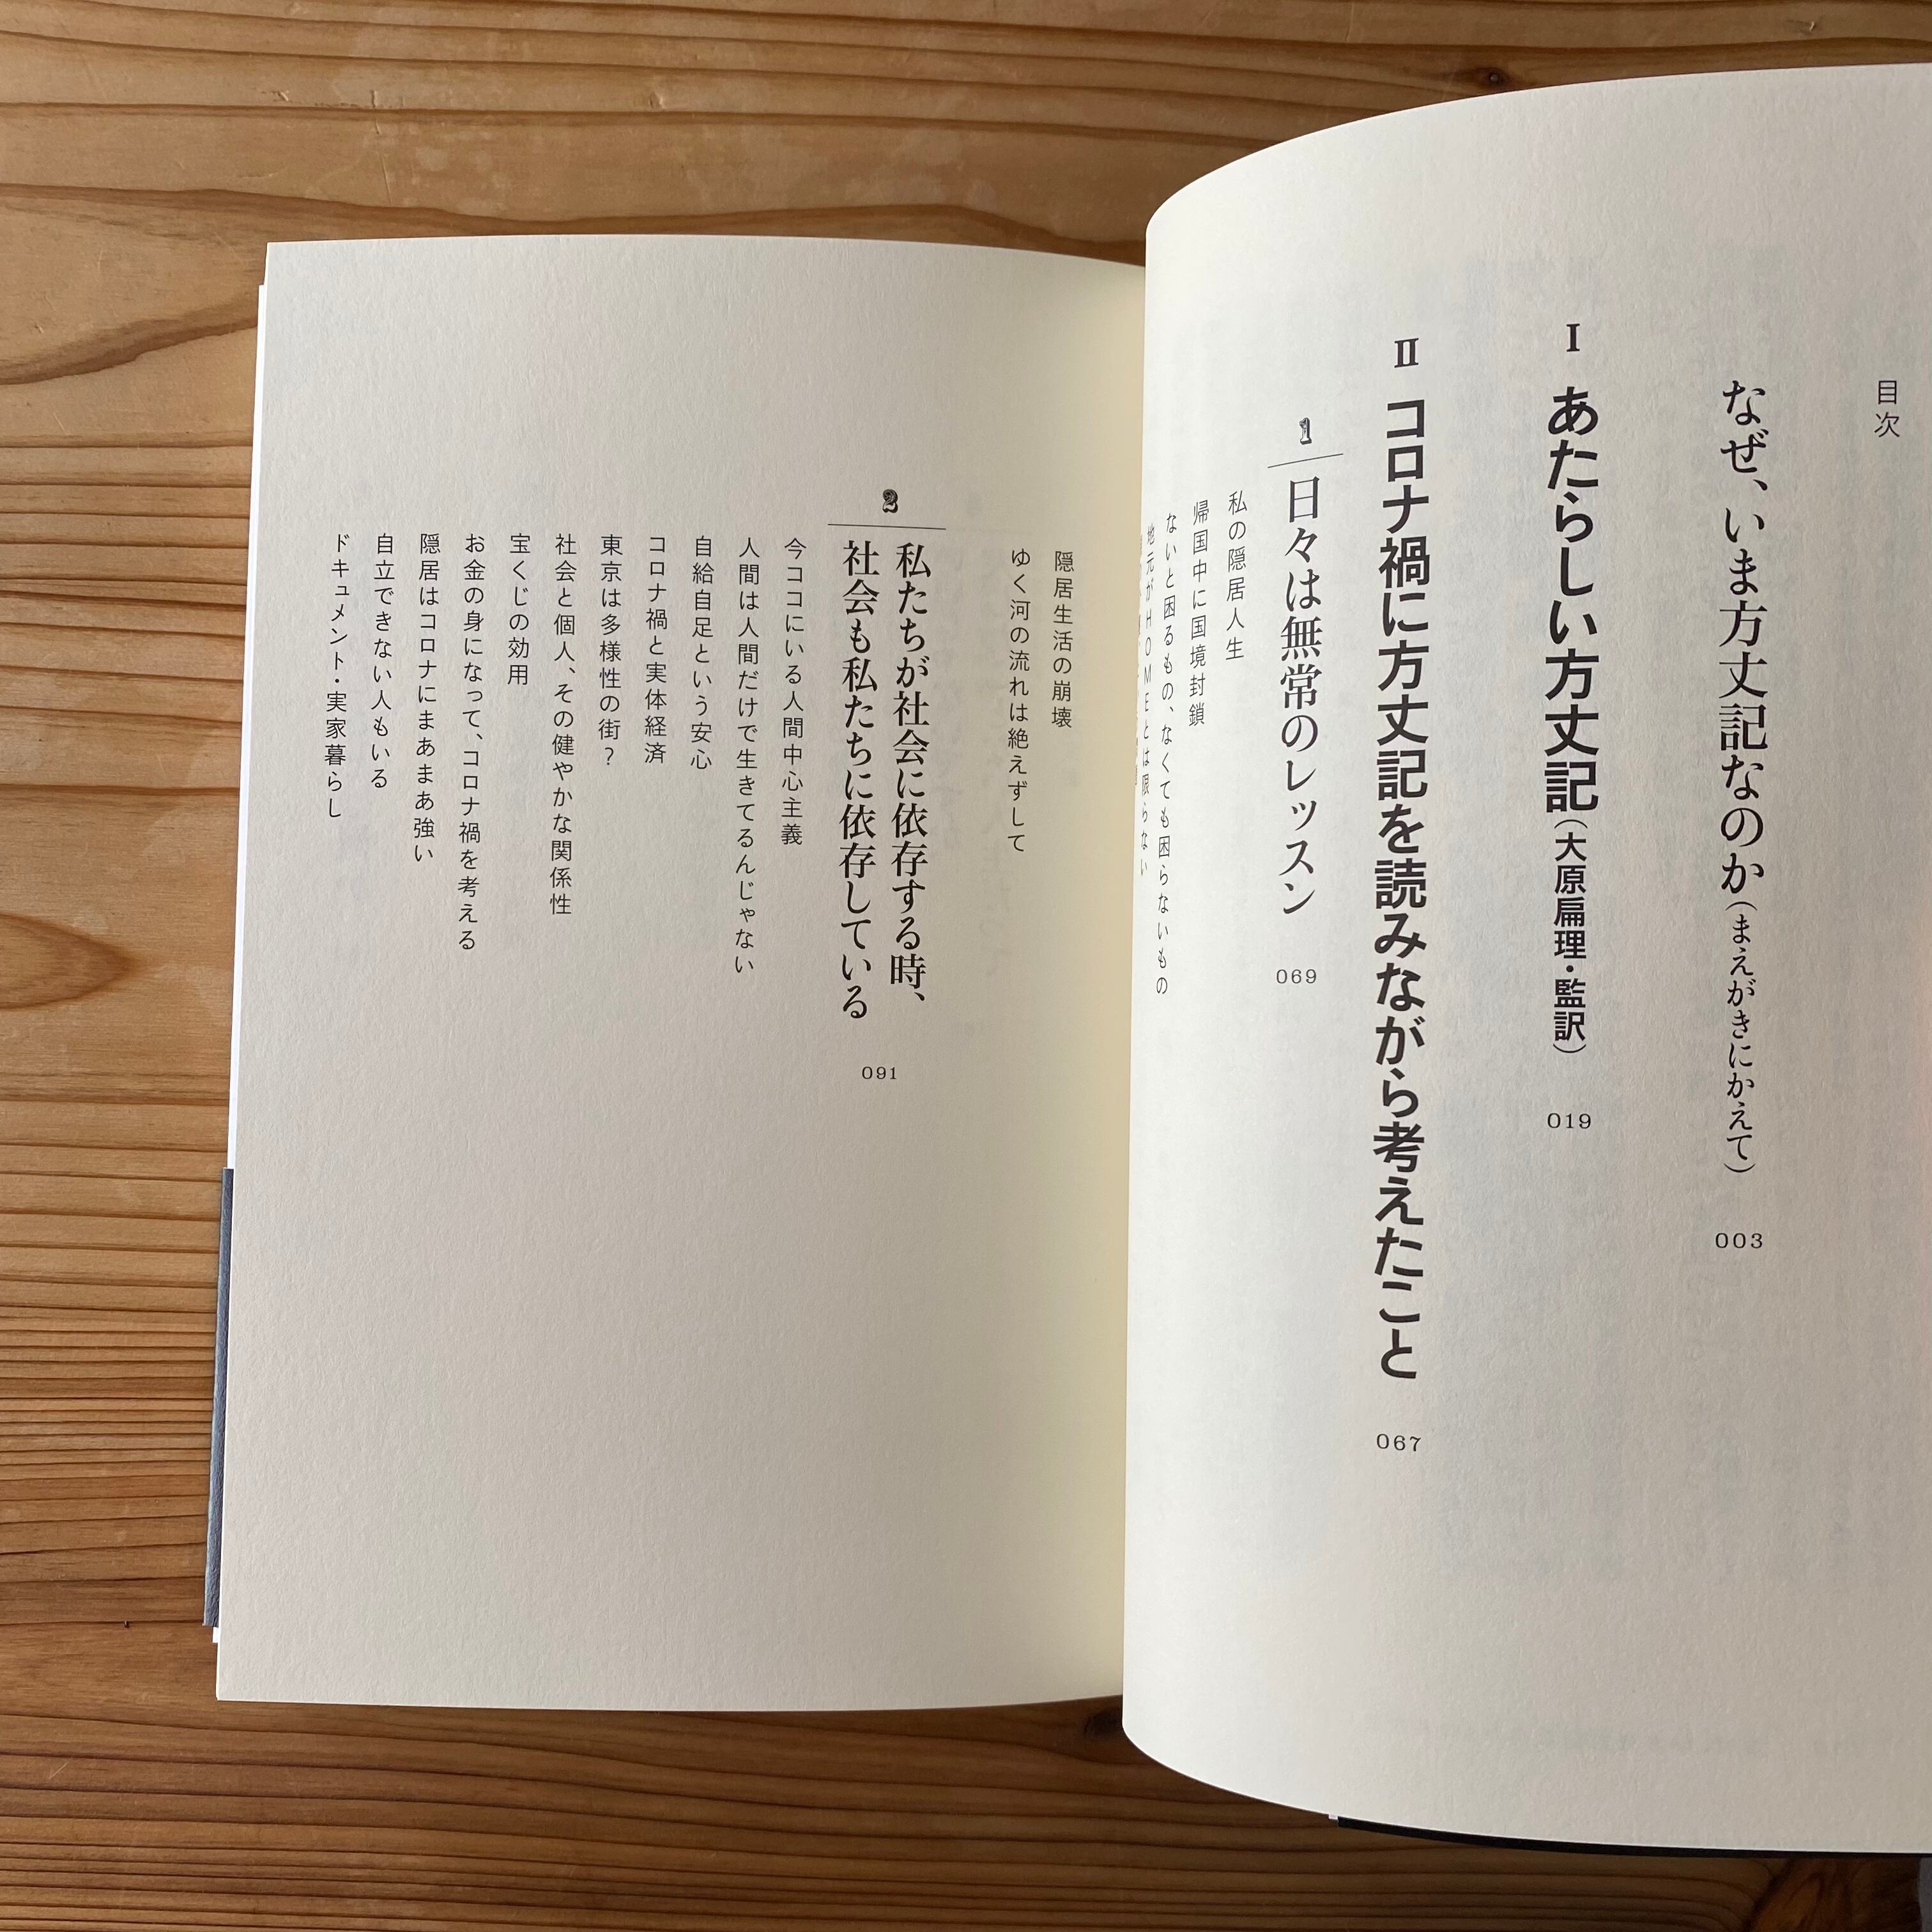 目次
なぜ、いま方丈記なのか（まえがきにかえて） 003
I あたらしい方丈記（大原扁理・監訳） 019
II コロナ禍に方丈記を読みながら考えたこと 067
1 日々は無常のレッスン 069
私の隠居人生
帰国中に国境封鎖
ないと困るもの、なくても困らないもの
地元がHOMEとは限らない
隠居生活の崩壊
ゆく河の流れは絶えずして
2 私たちが社会に依存する時、
社会も私たちに依存している 091
今ココにいる人間中心主義
人間は人間だけで生きてるんじゃない
自給自足という安心
コロナ禍と実体経済
東京は多様性の街？
社会と個人、その健やかな関係性
宝くじの効用
お金の身になって、コロナ禍を考える
隠居はコロナにまあまあ強い
自立できない人もいる
ドキュメント・実家暮らし